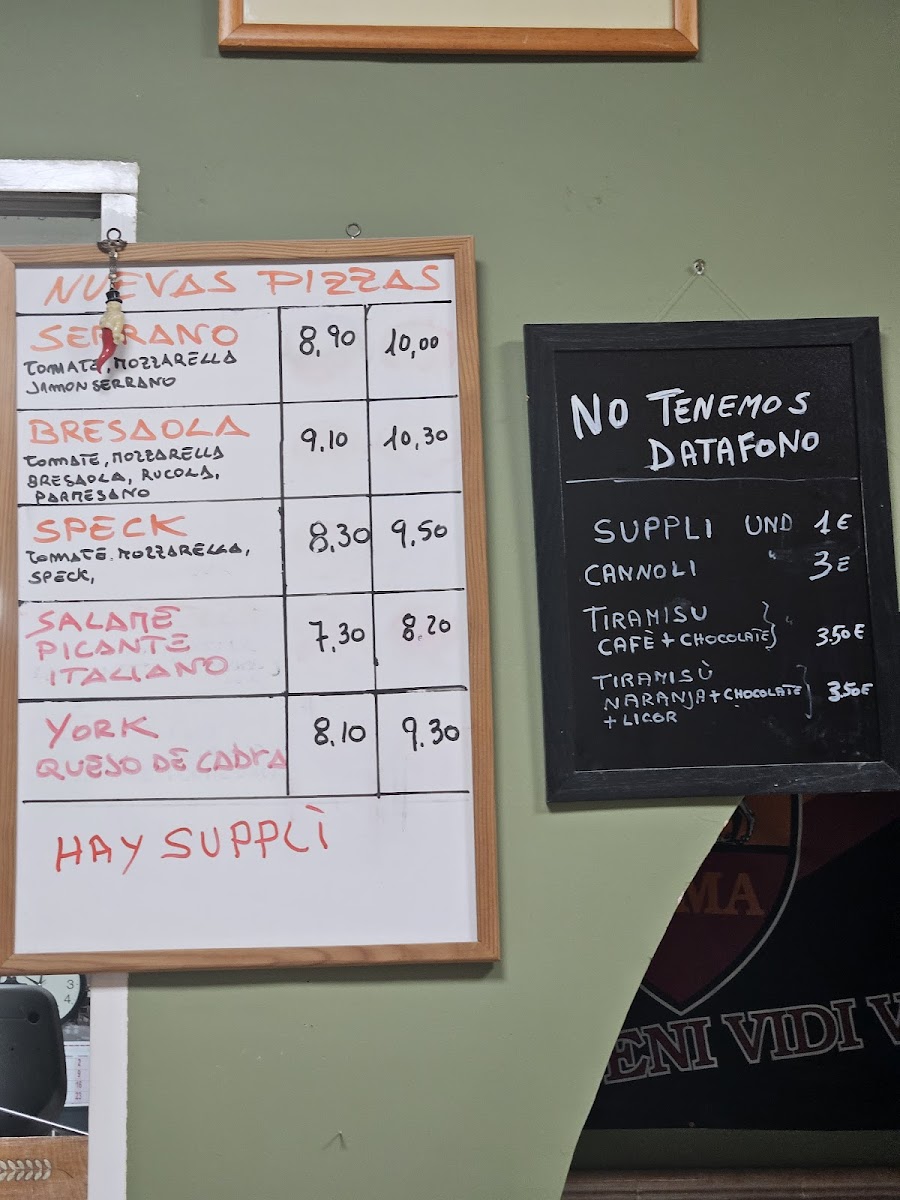 NUEVAS PIZZAS
SERRANO 8,90 10,00
TOMATE, MOZZARELLA
JAMON SERRANO
BRESAOLA 9.10 10,30
TOMATE, MOZZARELLA
BRESAOLA, RUCOLA,
PARMESANO
SPECK 8.30 9.50
TOMATE. MOZZARELLA,
SPECK,
SALAME 7,30 8.20
PICANTE
ITALIANO
YORK 8.10 9.30
QUESO DE CABRA
HAY SUPPLÌ
NO TENEMOS
DATAFONO
SUPPLI UND 1€
CANNOLI " 3€
TIRAMISU
CAFÈ + CHOCOLATE } " 3.50€
TIRAMISÙ
NARANJA + CHOCOLATE } 3.50€
+ LICOR
MA
ENI VIDI V
3
4
2
9
16
23